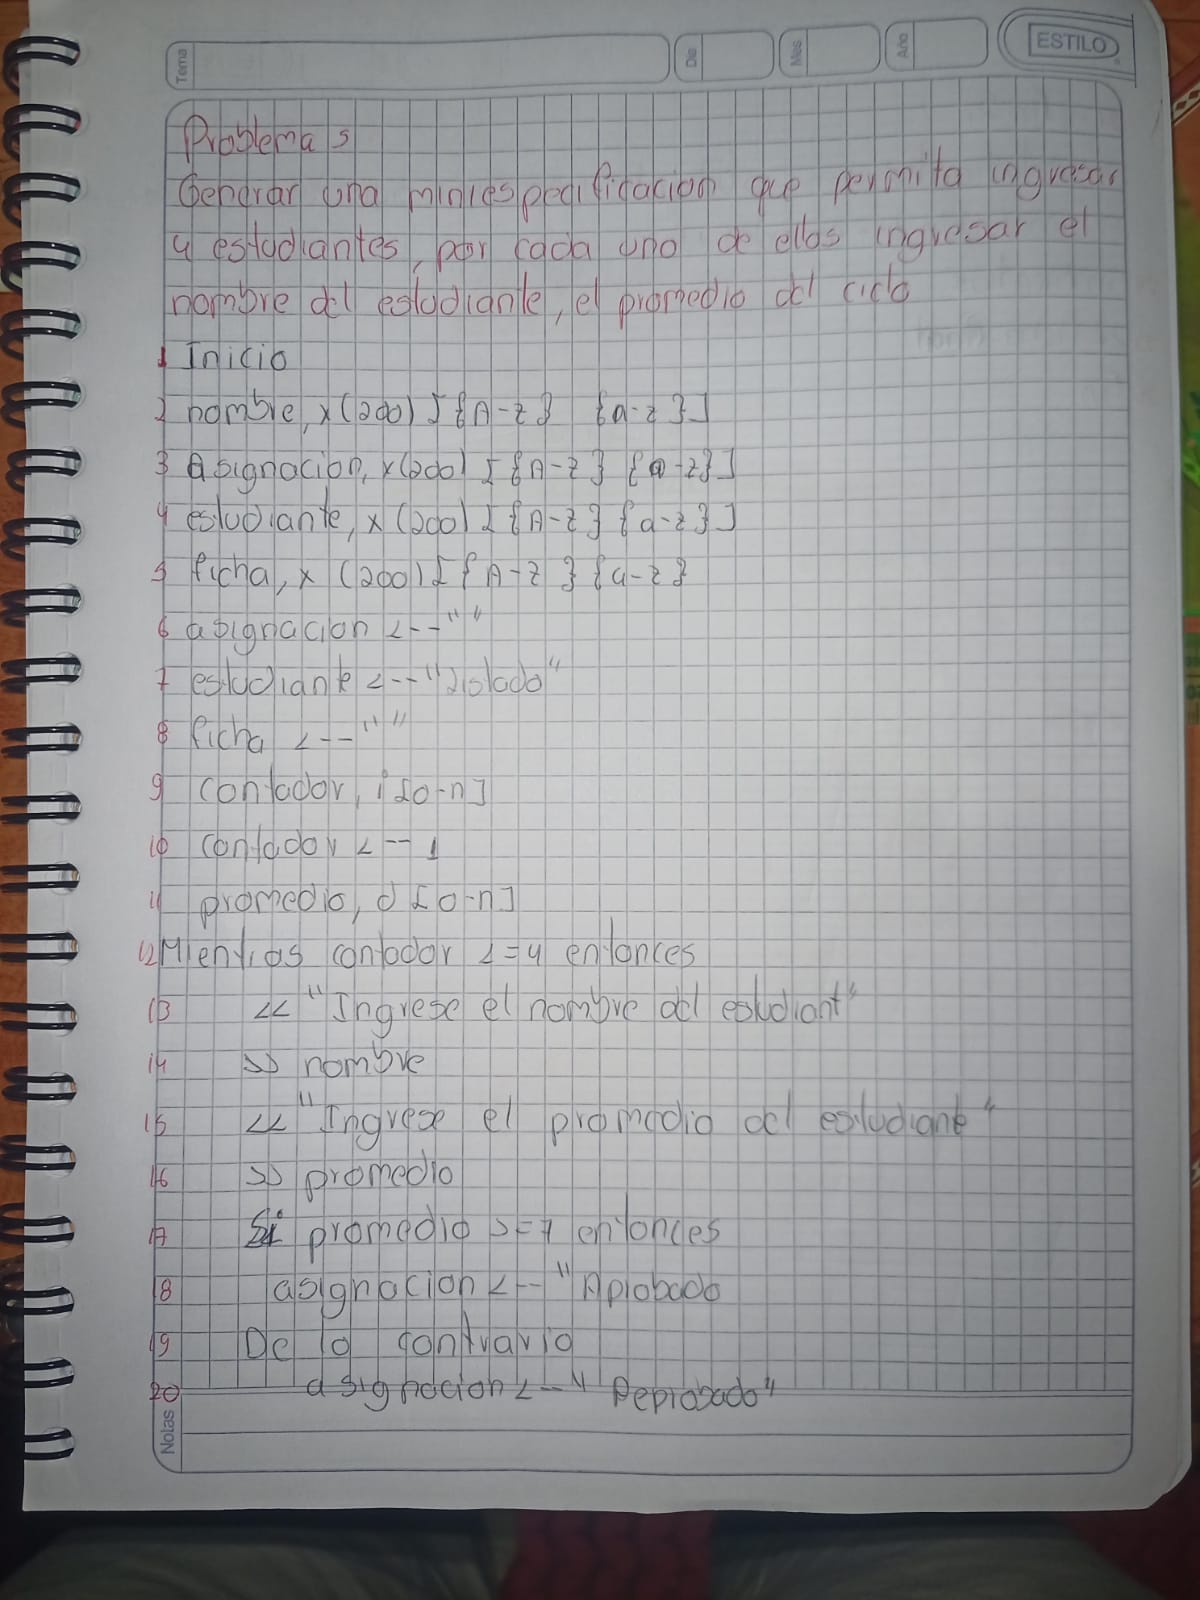 Tema
Dia
Mes
Año
ESTILO
Problema 5
Generar una miniespedificacion que permita ingresar
4 estudiantes, por cada uno de ellos ingresar el
nombre del estudiante, el promedio del ciclo
1 Inicio
2 nombre, x (200) [{A-z} {a-z}]
3 Asignacion, x(200) [{A-z} {a-z}]
4 estudiante, x (200) [{A-z} {a-z}]
5 ficha, x (200) [{A-z} {a-z}
6 asignacion <--" "
7 estudiante <--"Listado"
8 ficha <--" "
9 contador, i [0-n]
10 contador <-- 1
11 promedio, d [0-n]
12 Mientras contador <=4 entonces
13 << "Ingrese el nombre del estudiant"
14 >> nombre
15 << "Ingrese el promedio del estudiante"
16 >> promedio
17 Si promedio >=7 entonces
18 asignacion <-- "Aprobado
19 De lo contrario
20 asignacion <--" Reprobado"
Notas